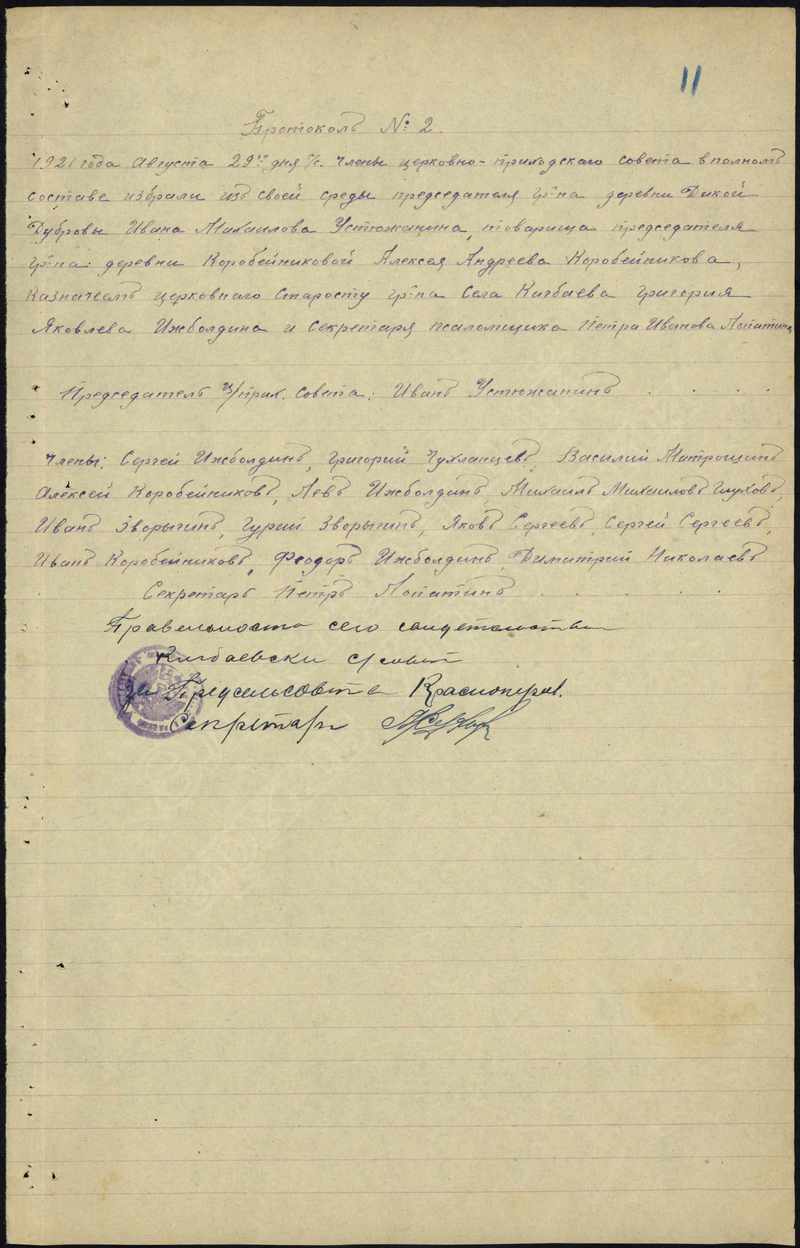 11
Протоколъ № 2.
1921 года Августа 29го дня с/г. Члены церковно-приходскаго совета в полномъ
составе избрали изъ своей среды председателя гр-на деревни Дикой
Дубровы Ивана Михаилова Устюжанина, товарища председателя
гр-на деревни Коробейниковой Алексея Андреева Коробейникова,
Казначеемъ церковнаго старосту гр-на Села Кигбаева Григория
Яковлева Ижболдина и Секретаря псаломщика Петра Иванова Лопатина
Председатель ц/прих. совета: Иванъ Устюжанинъ
Члены: Сергей Ижболдинъ, Григорий Чухланцевъ, Василий Матрошинъ
Алексей Коробейниковъ, Левъ Ижболдинъ, Михаилъ Михаиловъ Глуховъ,
Иванъ Зворыгинъ, Гурий Зворыгинъ, Яковъ Сергеевъ, Сергей Сергеевъ,
Иванъ Коробейниковъ, Феодоръ Ижболдинъ, Димитрий Николаевъ
Секретарь Петръ Лопатинъ
Правельность сего свидетельствует
Кигбаевски с/совет
за Предсельсовета Красноперов.
Секретарь